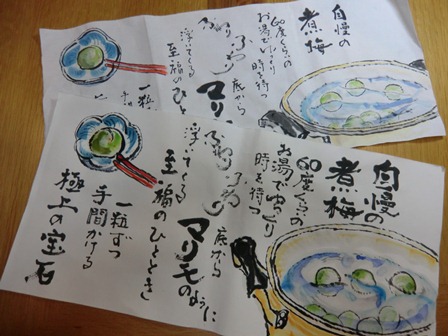 自慢の
煮梅
60度くらいの
お湯でゆっくり
時を待つ
ふわりふわり
底から
マリモ
浮いてくる
至福のひと
一粒
自慢の
煮梅
60度くらいの
お湯でゆっくり
時を待つ
ふわりふわり
底から
マリモのように
浮いてくる
至福のひととき
一粒ずつ
手間かける
極上の宝石